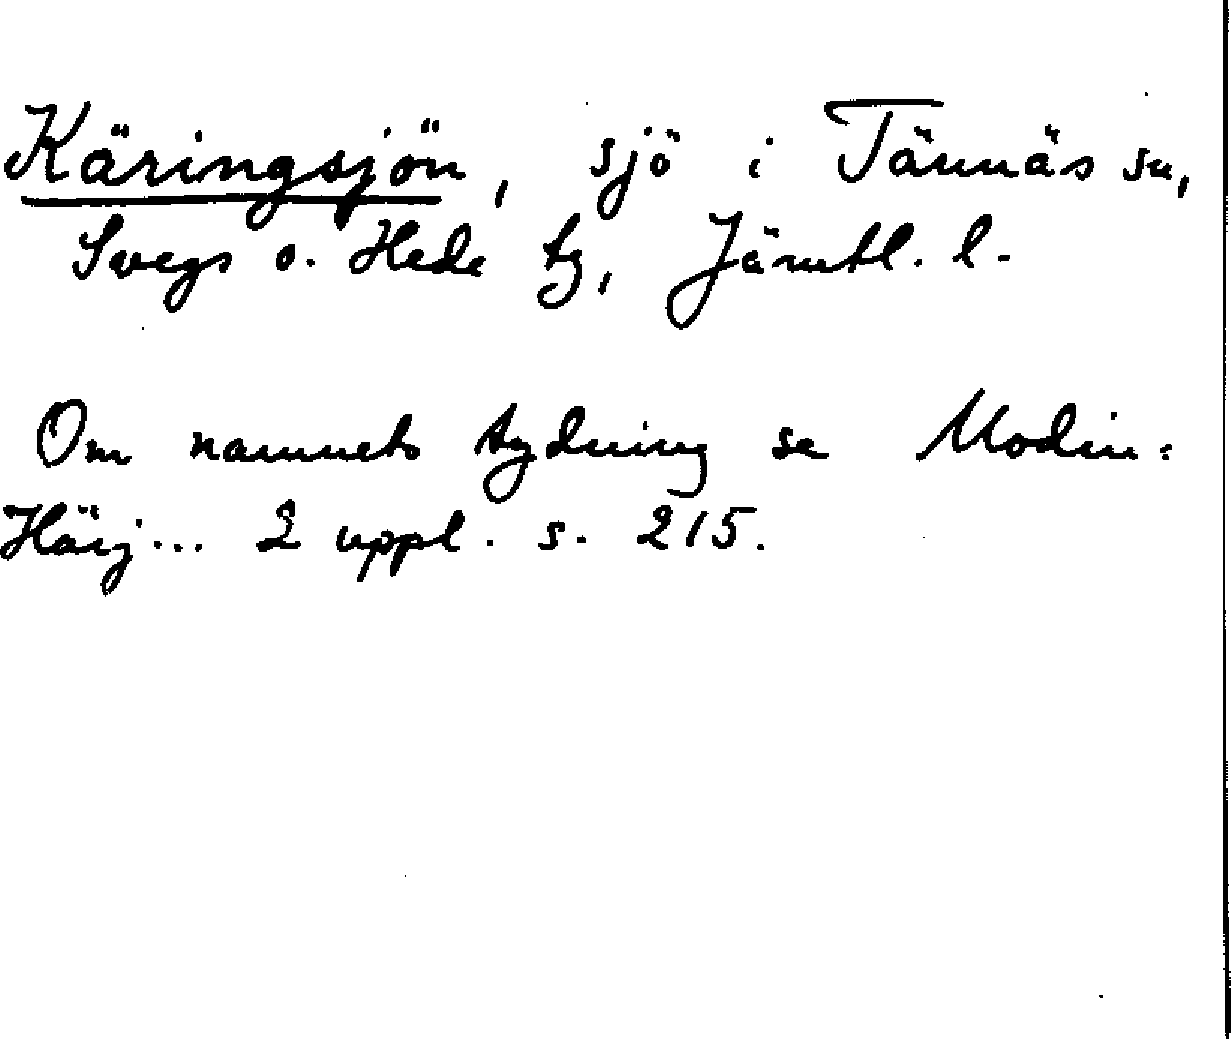 Käringsjön, sjö i Tännäs sn,
Svegs o. Hede tg, Jämtl. l.
Om namnets tydning se Modin:
Härj... 2 uppl. s. 215.